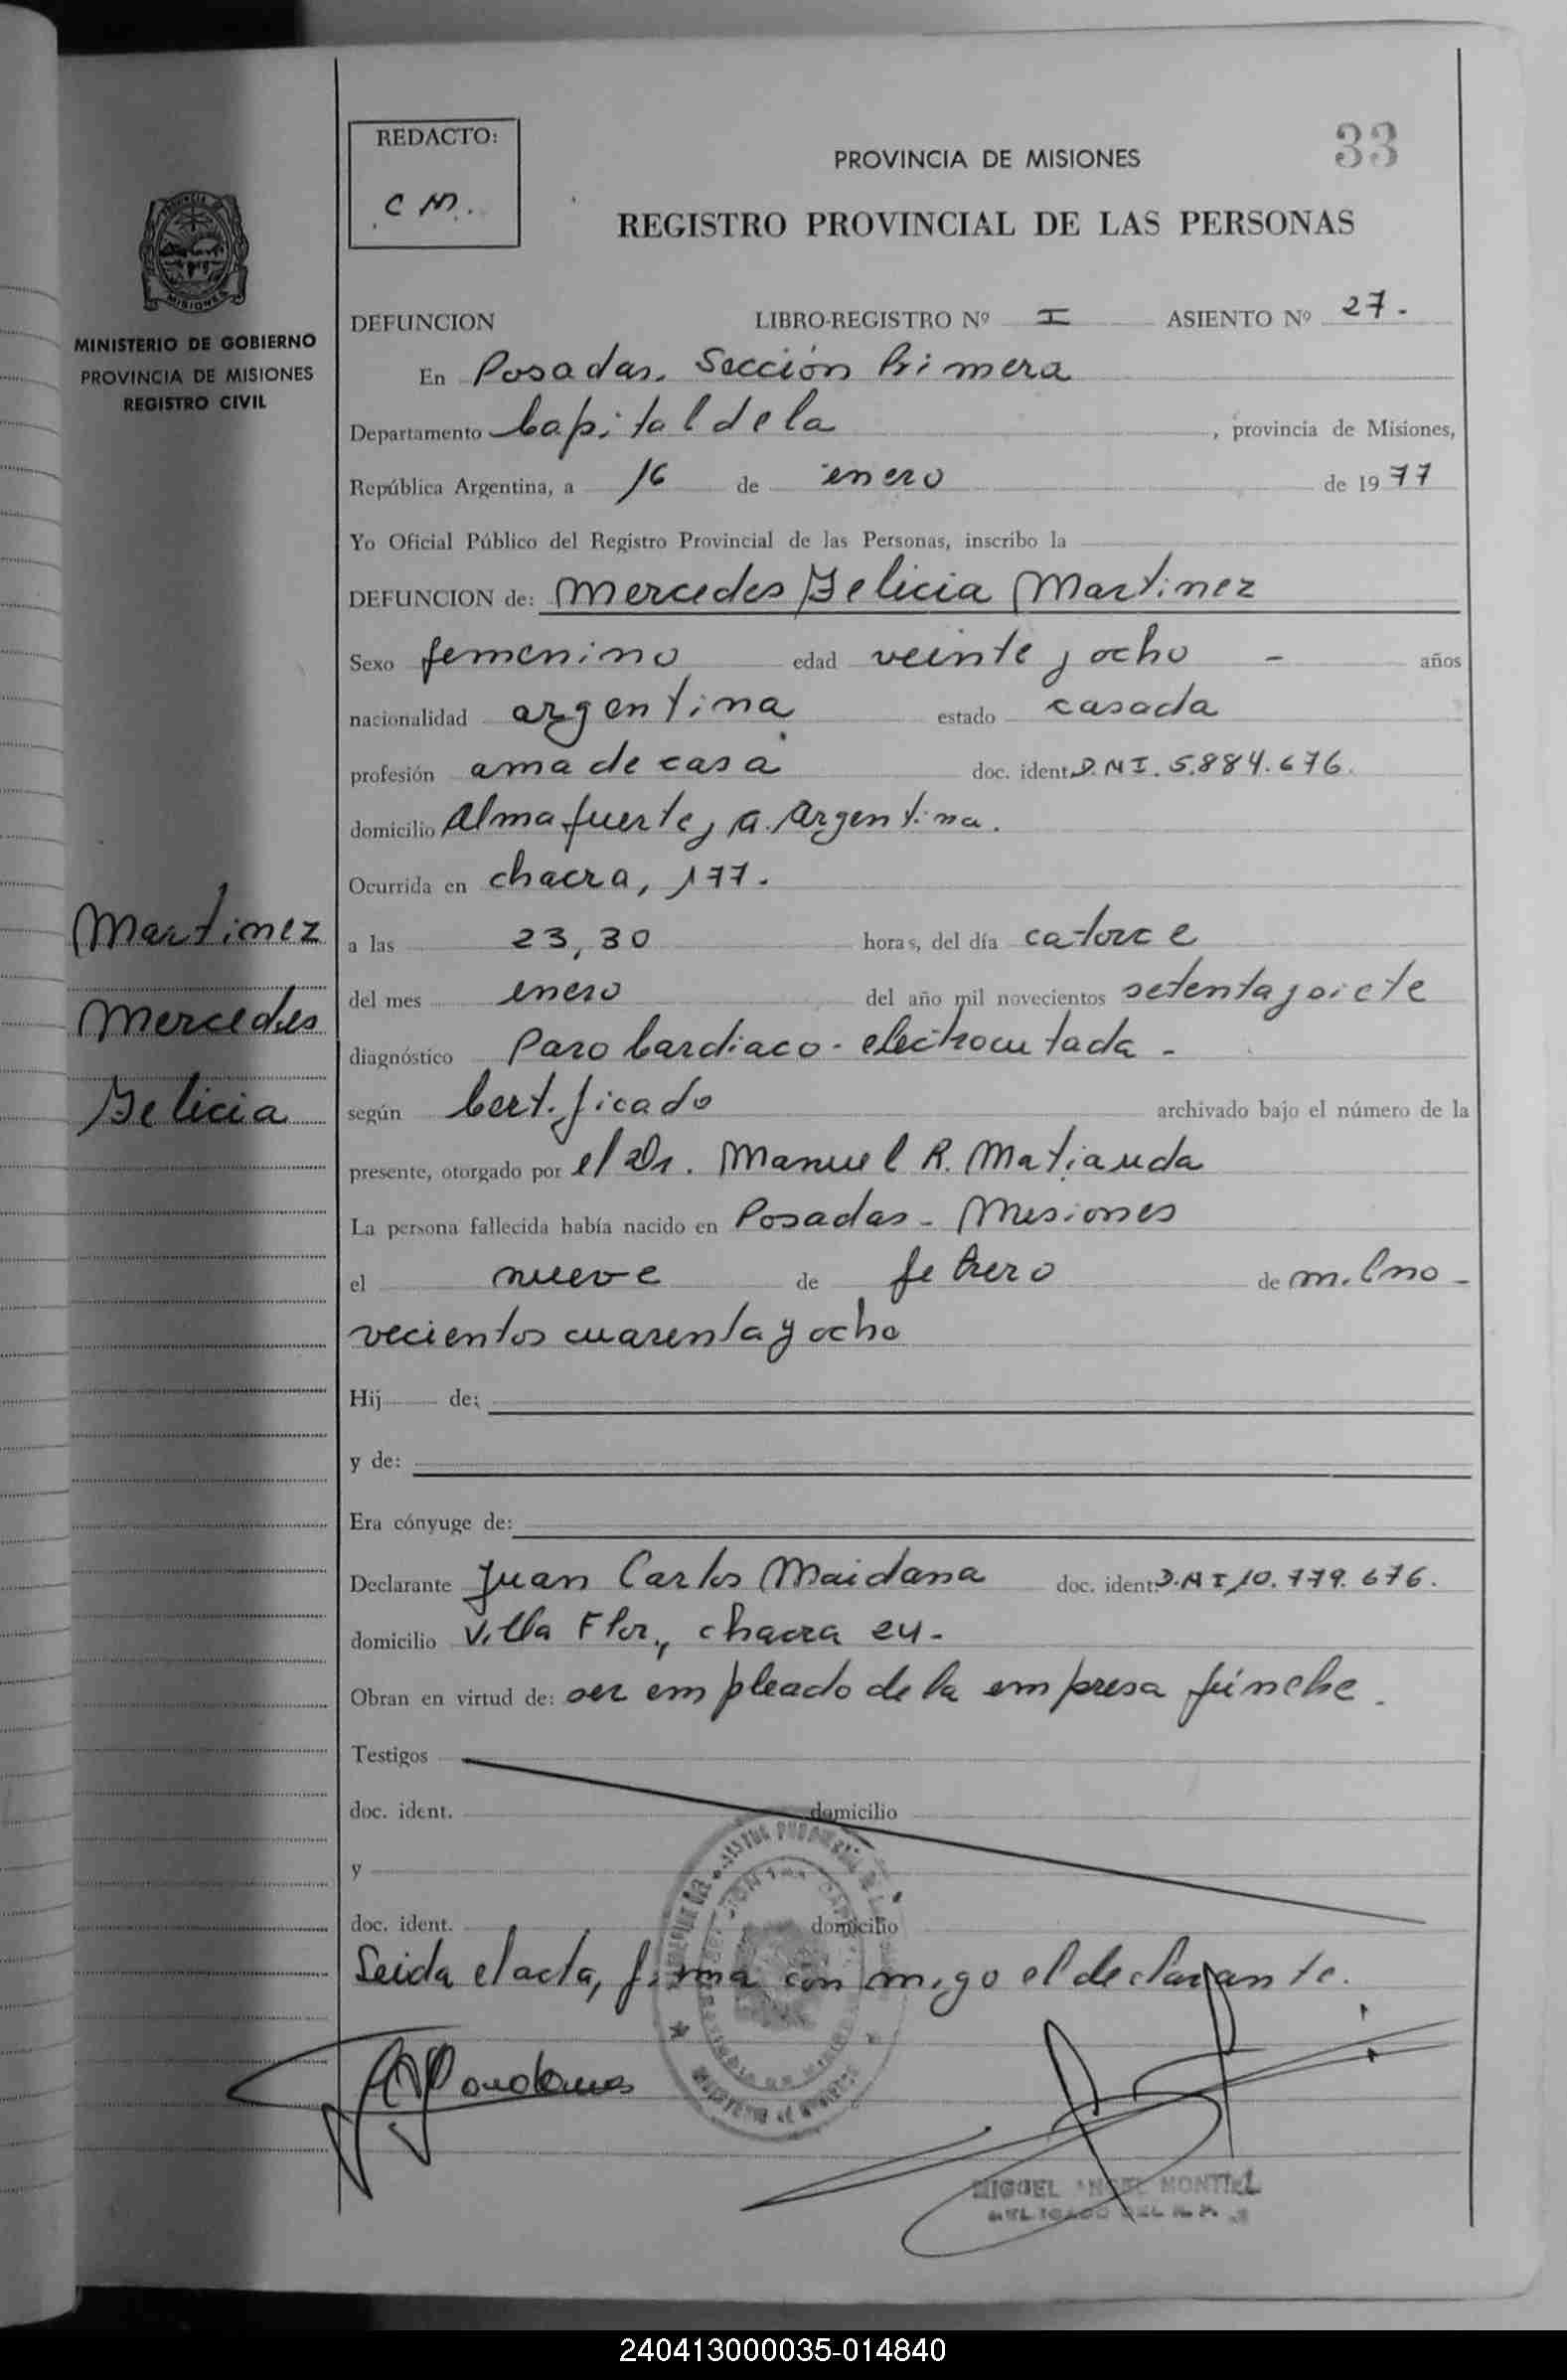 REDACTO:
C M.
33
PROVINCIA DE MISIONES
REGISTRO PROVINCIAL DE LAS PERSONAS
MISIONES
MINISTERIO DE GOBIERNO
PROVINCIA DE MISIONES
REGISTRO CIVIL
DEFUNCION LIBRO-REGISTRO Nº I ASIENTO Nº 27.
En Posadas. Sección Primera
Departamento Capital de la , provincia de Misiones,
República Argentina, a 16 de enero de 1977
Yo Oficial Público del Registro Provincial de las Personas, inscribo la
DEFUNCION de: Mercedes Felicia Martinez
Sexo femenino edad veinte y ocho - años
nacionalidad argentina estado casada
profesión ama de casa doc. ident. D.N.I. 5.884.676.
domicilio Almafuerte, a. Argentina.
Ocurrida en chacra, 177.
Martinez
a las 23,30 horas, del día catorce
del mes enero del año mil novecientos setenta y siete
Mercedes
diagnóstico Paro Cardiaco - electrocutada -
Felicia
según Certificado archivado bajo el número de la
presente, otorgado por el Dr. Manuel R. Matiauda
La persona fallecida había nacido en Posadas - Misiones
el nueve de febrero de mil no-
vecientos cuarenta y ocho
Hij de:
y de:
Era cónyuge de:
Declarante Juan Carlos Maidana doc. ident. D.N.I 10.779.676.
domicilio Villa Flor, chacra 24-
Obran en virtud de: ser empleado de la empresa fúnebre.
Testigos
doc. ident. domicilio
y
doc. ident. domicilio
Leida el acta, firma conmigo el declarante.
MIGUEL ANGEL MONTIEL
240413000035-014840